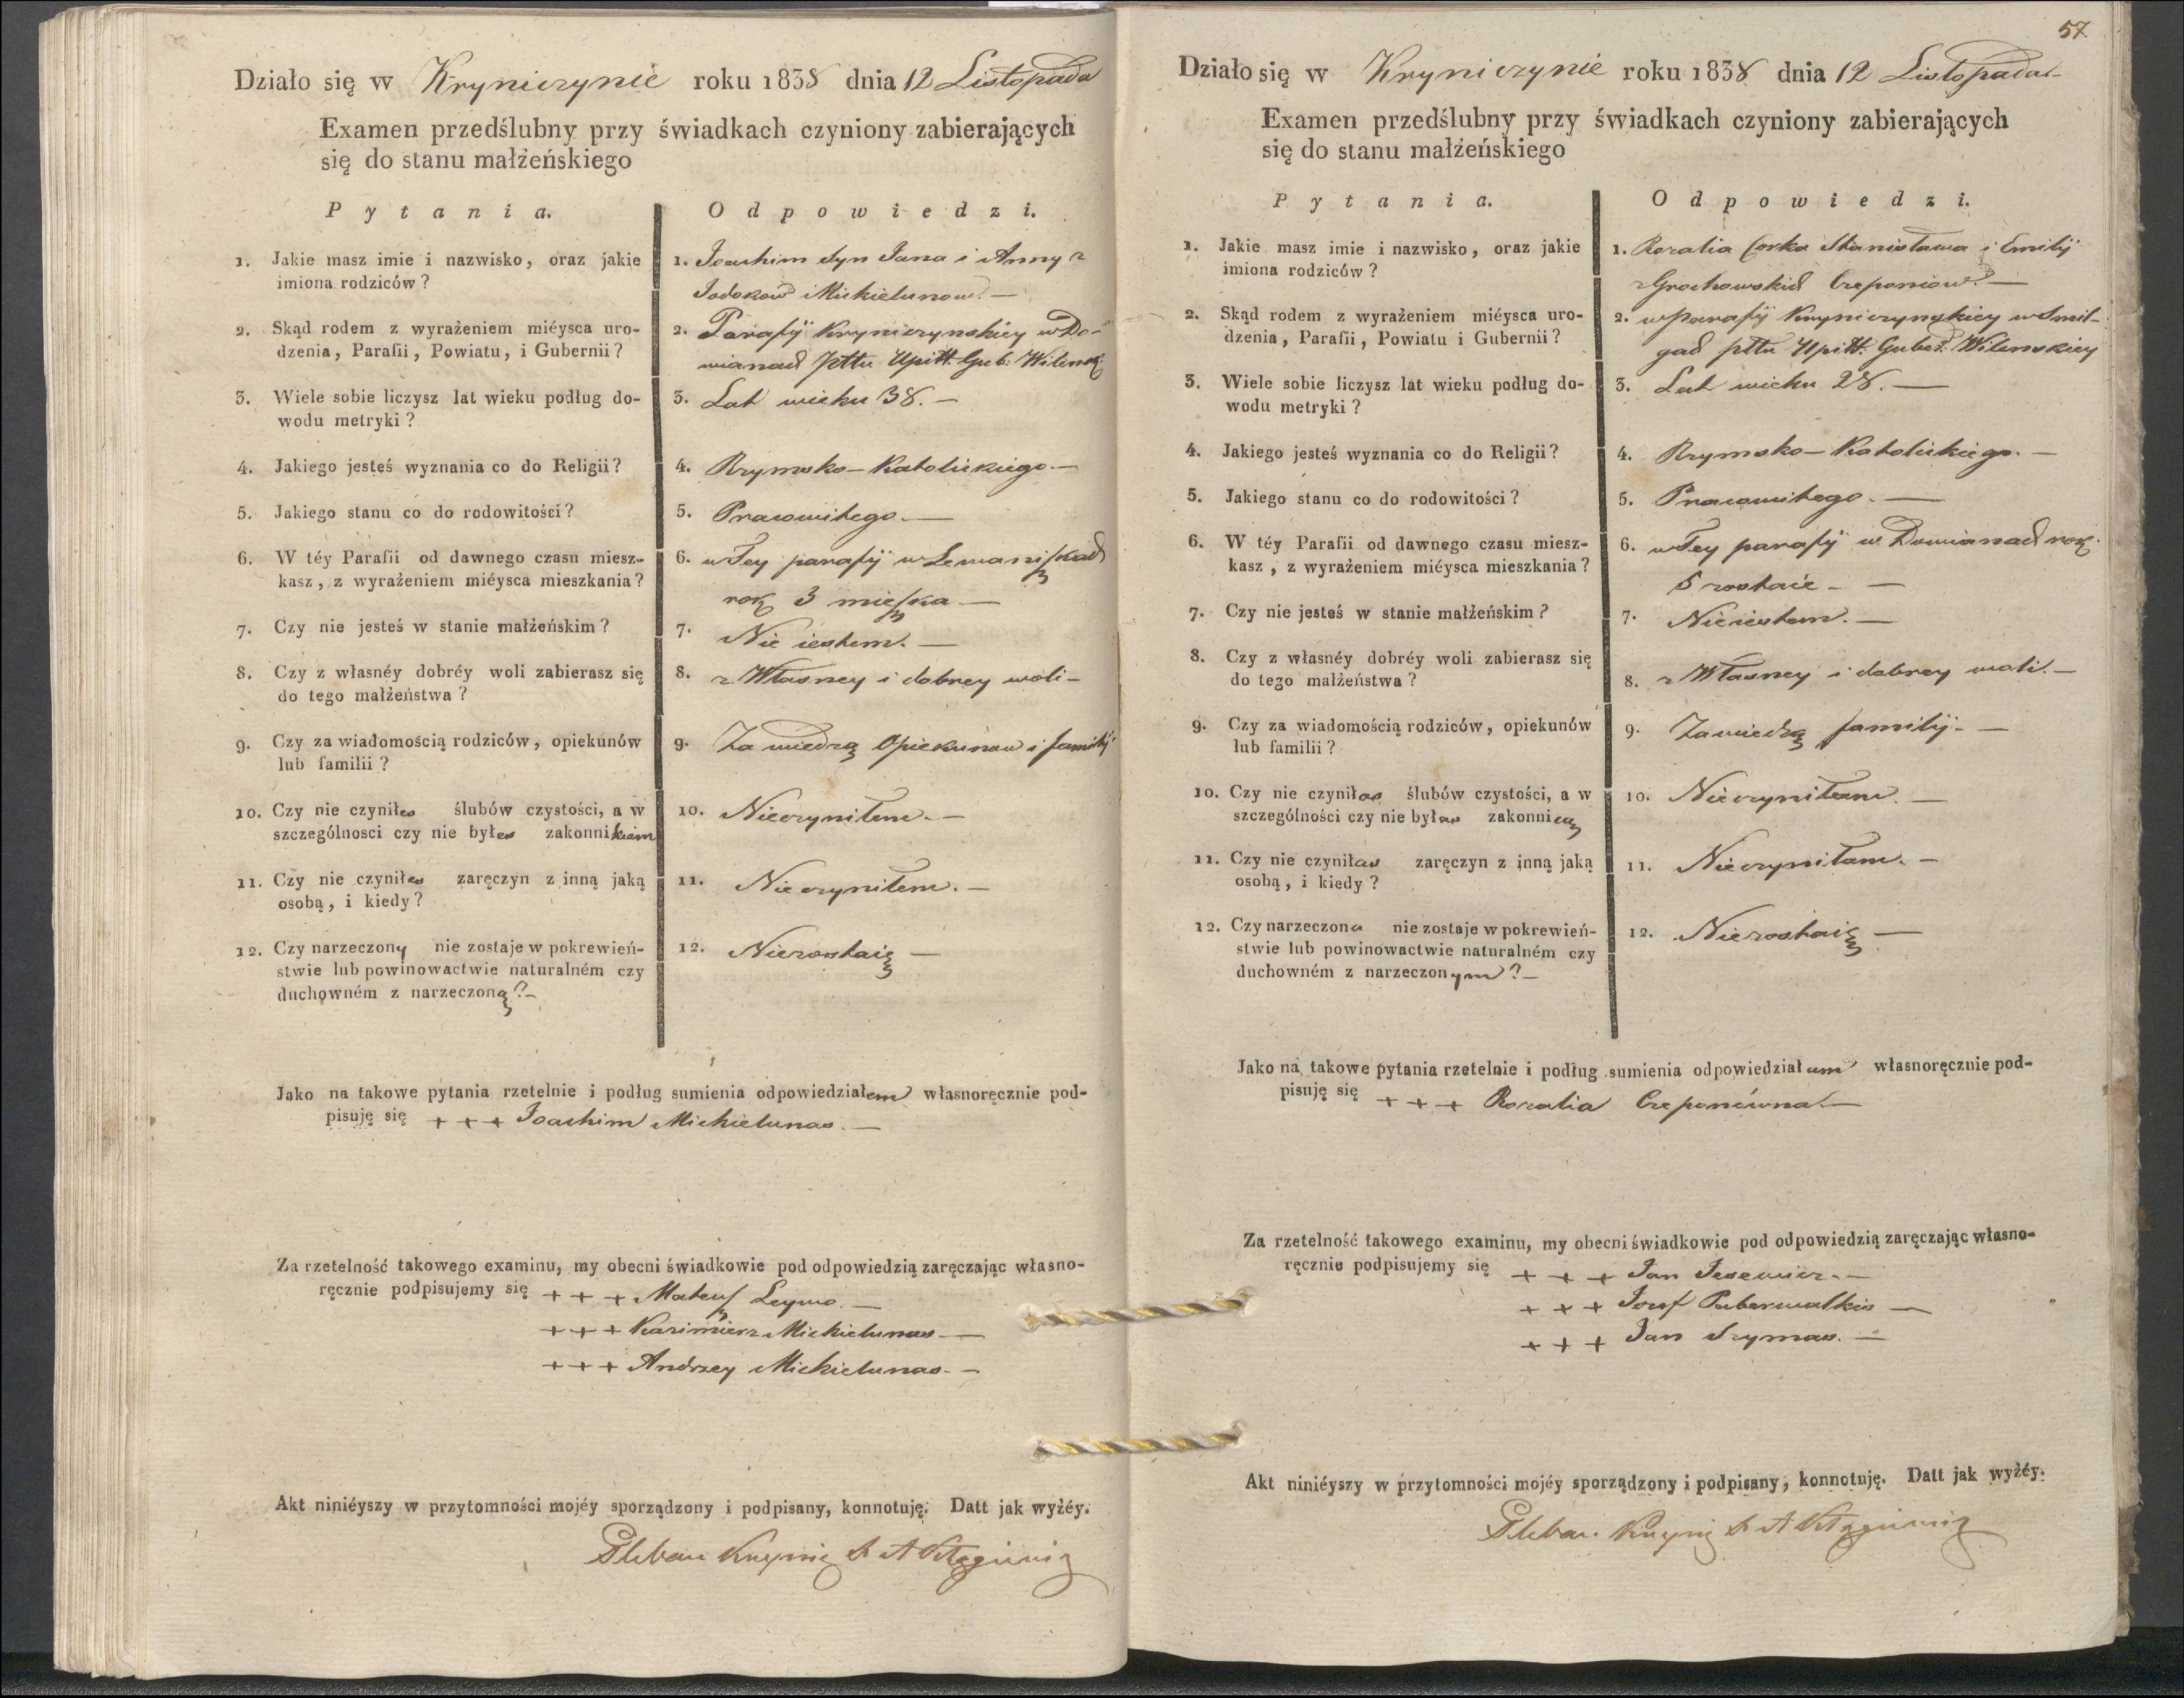 Działo się w Kryniczynie roku 1838 dnia 12 Listopada
Examen przedślubny przy świadkach czyniony zabierających
się do stanu małżeńskiego
P y t a n i a.
O d p o w i e d z i.
1. Jakie masz imie i nazwisko, oraz jakie
imiona rodziców?
1. Joachim Syn Jana i Anny z
Jodokow Mickielunow. —
2. Skąd rodem z wyrażeniem miéysca uro-
dzenia, Parafii, Powiatu, i Gubernii?
2. Parafij Kryniczynskiey w Do-
wianach Pttu Upitt. Gub. Wilensk
3. Wiele sobie liczysz lat wieku podług do-
wodu metryki?
3. Lat wieku 38. —
4. Jakiego jesteś wyznania co do Religii?
4. Rzymsko-Katolickiego. —
5. Jakiego stanu co do rodowitości?
5. Pracowitego. —
6. W téy Parafii od dawnego czasu miesz-
kasz, z wyrażeniem miéysca mieszkania?
6. w Tey parafij w Lemaniszkach
rok 3 mieszka —
7. Czy nie jesteś w stanie małżeńskim?
7. Nie iestem. —
8. Czy z własnéy dobréy woli zabierasz się
do tego małżeństwa?
8. z Własney i dobrey woli —
9. Czy za wiadomością rodziców, opiekunów
lub familii?
9. Za wiedzą Opiekunow i familij
10. Czy nie czyniłes ślubów czystości, a w
szczególnosci czy nie byłes zakonnikiem
10. Nieczyniłem. —
11. Czy nie czyniłes zaręczyn z inną jaką
osobą, i kiedy?
11. Nieczyniłem. —
12. Czy narzeczony nie zostaje w pokrewień-
stwie lub powinowactwie naturalném czy
duchowném z narzeczoną? —
12. Niezostaię —
Jako na takowe pytania rzetelnie i podług sumienia odpowiedziałem własnoręcznie pod-
pisuję się + + + Joachim Mickielunas. —
Za rzetelność takowego examinu, my obecni świadkowie pod odpowiedzią zaręczając własno-
ręcznie podpisujemy się + + + Mateusz Leymo. —
+ + + Kazimierz Mickielunas —
+ + + Andrzey Mickielunas. —
Akt niniéyszy w przytomności mojéy sporządzony i podpisany, konnotuję. Datt jak wyżéy.
Pleban
57.
Działo się w Kryniczynie roku 1838 dnia 12 Listopada. —
Examen przedślubny przy świadkach czyniony zabierających
się do stanu małżeńskiego
P y t a n i a.
O d p o w i e d z i.
1. Jakie masz imie i nazwisko, oraz jakie
imiona rodziców?
1. Rozalia Corka Stanisława i Emilij
z Grochowskich Czeponiow. —
2. Skąd rodem z wyrażeniem miéysca uro-
dzenia, Parafii, Powiatu i Gubernii?
2. w Parafij Kryniczynskiey w Smil-
gach pttu Upitt. Guber. Wilenskiey
3. Wiele sobie liczysz lat wieku podług do-
wodu metryki?
3. Lat wieku 28. —
4. Jakiego jesteś wyznania co do Religii?
4. Rzymsko-Katolickiego. —
5. Jakiego stanu co do rodowitości?
5. Pracowitego. —
6. W téy Parafii od dawnego czasu miesz-
kasz, z wyrażeniem miéysca mieszkania?
6. w Tey parafij w Dowianach rok
5 zostaie — —
7. Czy nie jesteś w stanie małżeńskim?
7. Nieiestem. —
8. Czy z własnéy dobréy woli zabierasz się
do tego małżeństwa?
8. z Własney i dobrey woli. —
9. Czy za wiadomością rodziców, opiekunów
lub familii?
9. Za wiedzą familij — —
10. Czy nie czyniłas ślubów czystości, a w
szczególności czy nie byłas zakonnicą
10. Nieczyniłam. —
11. Czy nie czyniłas zaręczyn z inną jaką
osobą, i kiedy?
11. Nieczyniłam. —
12. Czy narzeczona nie zostaje w pokrewień-
stwie lub powinowactwie naturalném czy
duchowném z narzeczonym? —
12. Niezostaię —
Jako na takowe pytania rzetelnie i podług sumienia odpowiedziałam własnoręcznie pod-
pisuję się + + + Rozalia Czeponiowna. —
Za rzetelność takowego examinu, my obecni świadkowie pod odpowiedzią zaręczając własno-
ręcznie podpisujemy się + + + Jan —
+ + + Jozef —
+ + + Jan Szymas. —
Akt niniéyszy w przytomności mojéy sporządzony i podpisany, konnotuję. Datt jak wyżéy.
Pleban